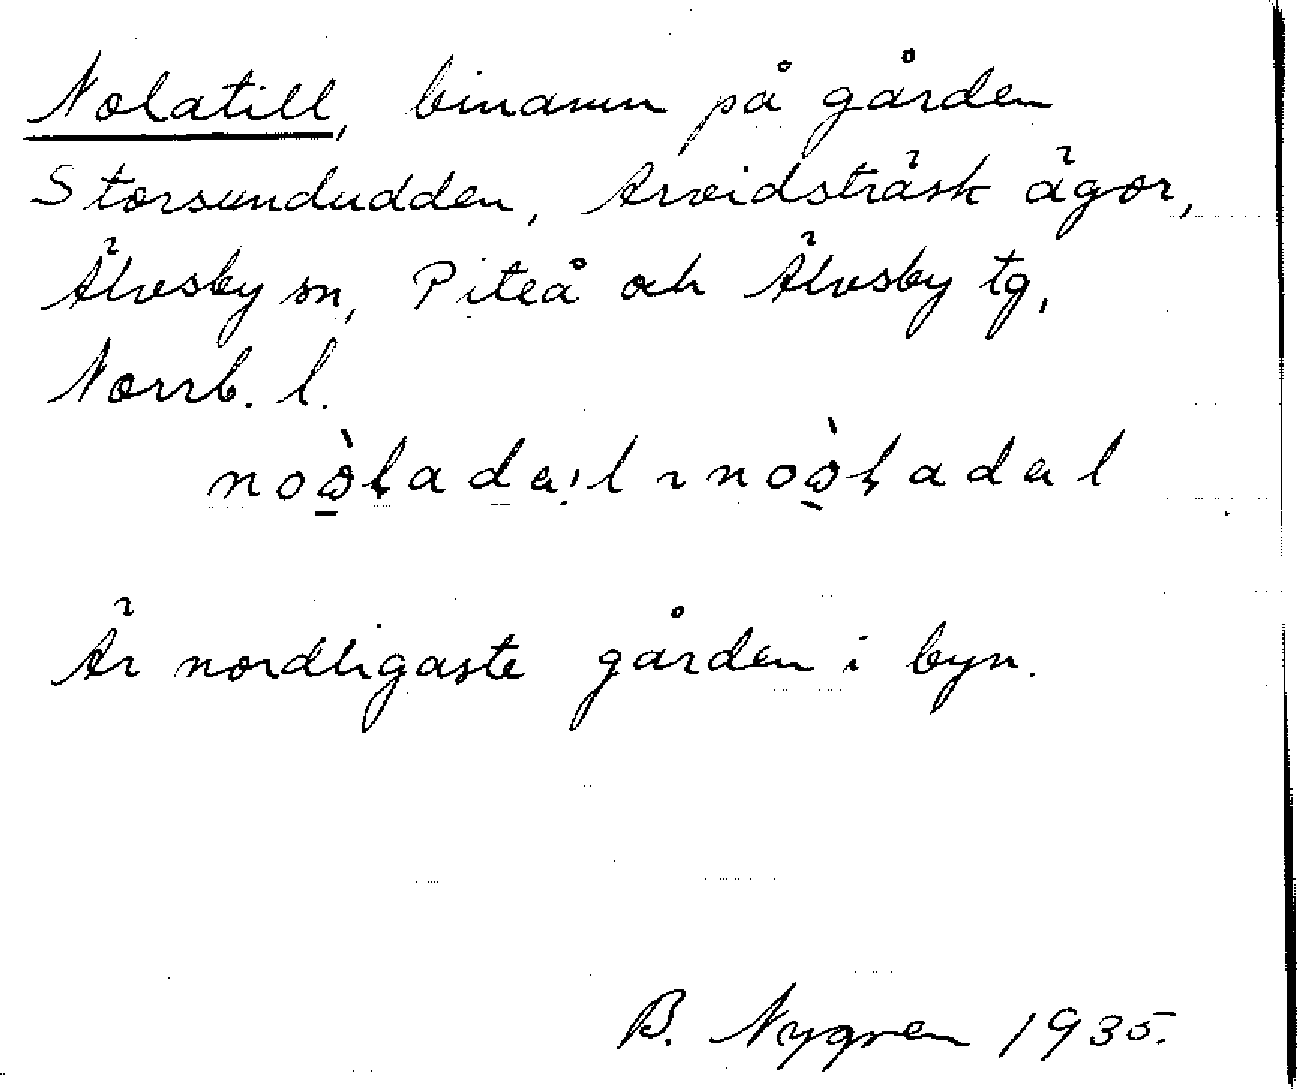 Nolatill, binamn på gården
Storsundudden, Arvidsträsk ägor,
Älvsby sn, Piteå och Älvsby tg,
Norrb. l.
Är nordligaste gården i byn.
B. Nygren 1935.